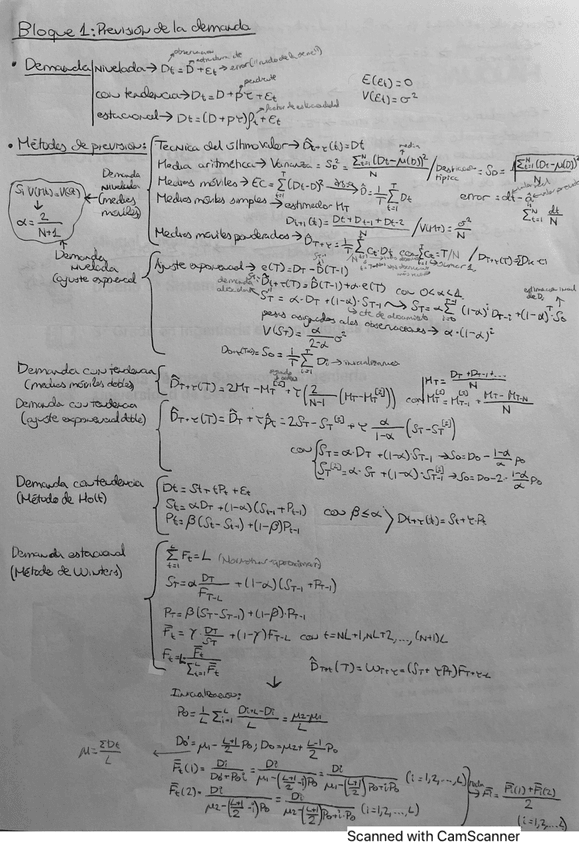 Bloque 1: Previsión de la demanda
observación
estructura de
• Demanda | Nivelada → Dt = D + Et → error
pendiente
con tendencia → Dt = D + pτ + Et
E(Et) = 0
V(Et) = σ²
factor de estacionalidad
estacional → Dt = (D + pτ)ρt + Et
• Métodos de previsión:
Técnica del último valor → D̂t+τ(t) = Dt
media
Media aritmética → Varianza = S_D² = Σ(Dt - μ(D))² / N / Desviación típica = S_D = √(Σ(Dt - μ(D))² / N)
Demanda Nivelada (medias móviles)
Medias móviles → EC = Σ(Dt - D)² → D̂ = 1/T Σ Dt
Medias móviles simples → estimador MT
Dt+1(t) = (Dt + Dt-1 + Dt-2)/N / V(MT) = σ²/N
Medias móviles ponderadas → D̂T+τ = 1/T Σ Ct · Dt con Σ Ct = T/N
Si V(MT) = V(ST)
α = 2/(N+1)
Demanda Nivelada (ajuste exponencial)
Ajuste exponencial → e(T) = DT - D̂(T-1)
D̂T+τ(T) = D̂(T-1) + α·e(T) con 0 < α < 1
ST = α · DT + (1-α) · ST-1 → ST = α Σ (1-α)^i DT-i + (1-α)^T · S0
cte de alisamiento
pesos asignados a las observaciones → α · (1-α)^i
V(ST) = α/(2-α) σ²
= S0 = 1/T Σ Di → inicializamos
Demanda con tendencia
(medias móviles dobles)
D̂T+τ(T) = 2MT - MT^[2] + τ (2/(N-1) (MT - MT^[2])) con
MT = (DT + DT-1 + ...)/N
MT^[2] = MT-1^[2] + (MT - MT-N)/N
Demanda con tendencia
(ajuste exponencial doble)
D̂T+τ(T) = D̂T + τ p̂t = 2ST - ST^[2] + τ α/(1-α) (ST - ST^[2])
con
ST = α · DT + (1-α) · ST-1 → S0 = D0 - (1-α)/α p0
ST^[2] = α · ST + (1-α) · ST-1^[2] → S0 = D0 - 2 · (1-α)/α p0
Demanda con tendencia
(Método de Holt)
Dt = St + τPt + Et
St = αDT + (1-α)(St-1 + Pt-1)
Pt = β(St - St-1) + (1-β)Pt-1
con β ≤ α
Dt+τ(t) = St + τ · Pt
Demanda estacional
(Método de Winters)
Σ Ft = L (Normalizar)
ST = α DT/FT-L + (1-α)(ST-1 + PT-1)
PT = β(ST - ST-1) + (1-β) · PT-1
F̄t = γ · DT/ST + (1-γ)FT-L con t = NL+1, NL+2, ..., (N+1)L
Ft = L F̄t / Σ F̄t
D̂T+τ(T) = WT+τ = (ST + τPT)FT+τ-L
Inicialización:
P0 = 1/L Σ (Di+L - Di)/L = (μ2 - μ1)/L
μ = ΣDt/L
D0' = μ1 - (L+1)/2 P0; D0 = μ2 + (L-1)/2 P0
F̄t(1) = Di/(D0' + P0·i) = Di/(μ1 - ((L+1)/2 - i)P0) = Di/(μ1 - ((L+1)/2)P0 + iP0) (i = 1, 2, ..., L)
F̄t(2) = Di/(μ2 - ((L+1)/2 - i)P0) = Di/(μ2 - ((L+1)/2)P0 + i·P0) (i = 1, 2, ..., L)
F̄i = (F̄i(1) + F̄i(2))/2
(i = 1, 2, ..., L)
Scanned with CamScanner